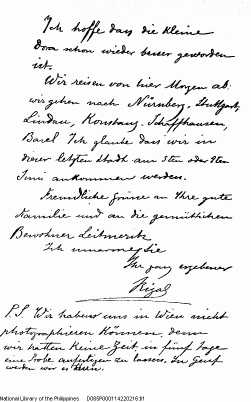 Ich hoffe dass die Kleine
Dora schon wieder besser geworden
ist.
Wir reisen von hier Morgen ab:
wir gehen nach Nürnberg, Stuttgart,
Lindau, Konstanz, Schaffhausen,
Basel Ich glaube dass wir in
dieser letzten Stadt am 3ten oder 4ten
Juni ankommen werden.
Freundliche Grüsse an Ihre gute
Familie und an die gemüthlichen
Bewohner Leitmeritz
Ich umarme Sie
Ihr ganz ergebener
Rizal
P.S. Wir haben uns in Wien nicht
photographieren können, denn
wir hatten keine Zeit in fünf Tage
eine Probe anfertigen zu lassen. In Genf
werden wir es thun.
National Library of the Philippines D065P00011422021б.tif